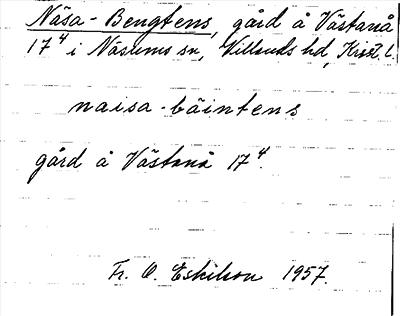 Näsa-Bengtens, gård å Västanå
17⁴ i Näsums sn, Villands hd, Krist. l.
naisa-bäintens
gård å Västanå 17⁴.
Fr. O. Eskilson 1957.